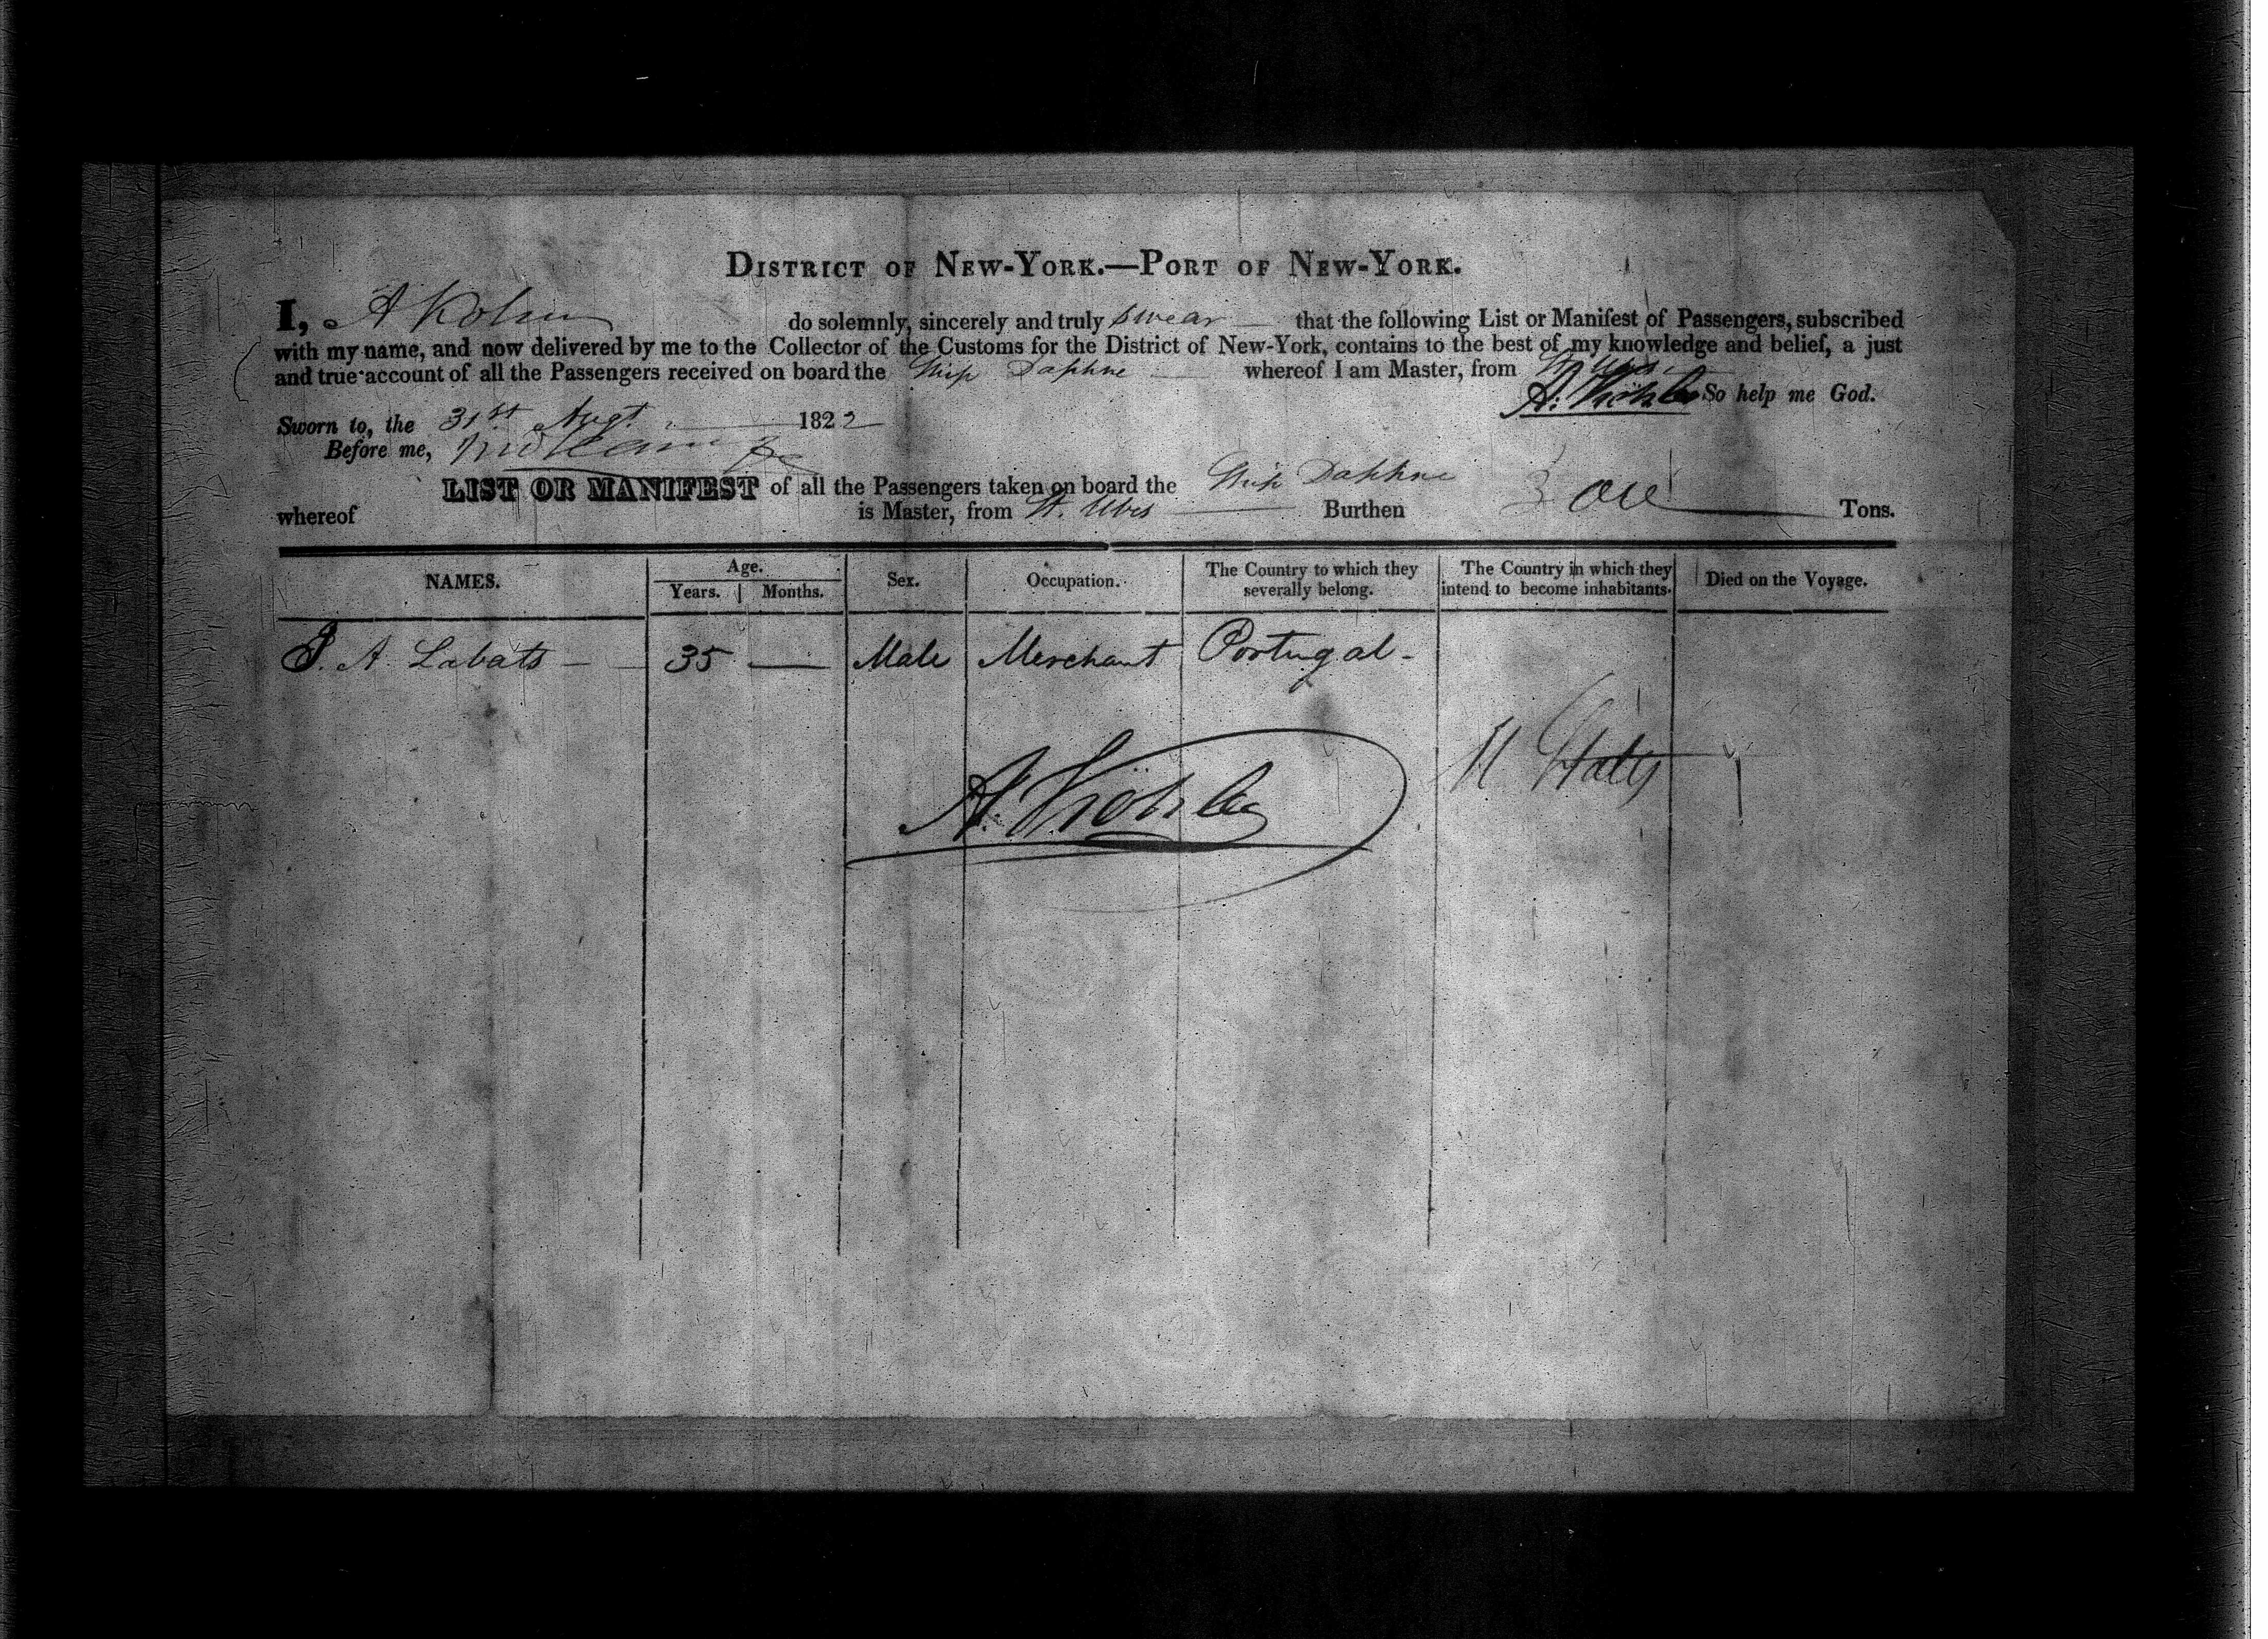 DISTRICT OF NEW-YORK.—PORT OF NEW-YORK.
I, A do solemnly, sincerely and truly swear that the following List or Manifest of Passengers, subscribed
with my name, and now delivered by me to the Collector of the Customs for the District of New-York, contains to the best of my knowledge and belief, a just
and true account of all the Passengers received on board the Ship Daphne whereof I am Master, from St. Ubes
A. So help me God.
Sworn to, the 31st Augt. 1822
Before me,
LIST OR MANIFEST of all the Passengers taken on board the Ship Daphne
whereof is Master, from St. Ubes Burthen Tons.
NAMES. Age. Years. Months. Sex. Occupation. The Country to which they severally belong. The Country in which they intend to become inhabitants. Died on the Voyage.
J. A. Labats — 35 — Male Merchant Portugal -
U States
A.